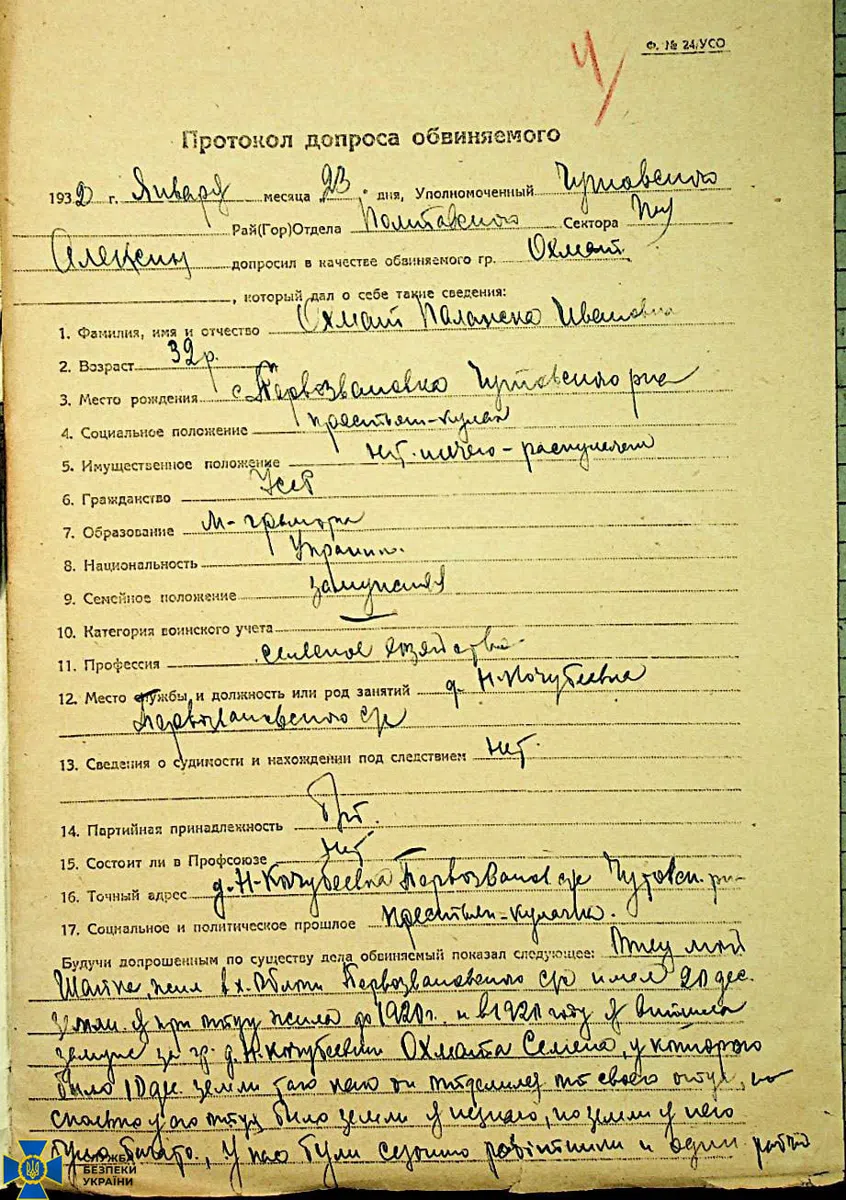 Ф. № 24/УСО
4/
Протокол допроса обвиняемого
1932 г. Января месяца 23 дня, Уполномоченный Чутовского
Рай(Гор)Отдела Полтавского Сектора ГПУ
Алексин допросил в качестве обвиняемого гр. Охмат
, который дал о себе такие сведения:
1. Фамилия, имя и отчество Охмат Палажка Ивановна
2. Возраст 32 р.
3. Место рождения с Первозвановка Чутовского р-на
4. Социальное положение крестьян-кулак
5. Имущественное положение нет ничего - раскулачен
6. Гражданство УССР
7. Образование м-грамотна
8. Национальность Украин.
9. Семейное положение замужняя
10. Категория воинского учета —
11. Профессия сельское хозяйство
12. Место службы и должность или род занятий д. Н-Кочубеевка
Первозвановского с/с
13. Сведения о судимости и нахождении под следствием нет.
14. Партийная принадлежность б/п.
15. Состоит ли в Профсоюзе нет
16. Точный адрес д. Н-Кочубеевка Первозванов с/с Чутовск. р-н
17. Социальное и политическое прошлое крестьян-кулачка.
Будучи допрошенным по существу дела обвиняемый показал следующее: Отец мой
жил в х. Первозвановского с/с имел 20 дес.
земли. я при отцу жила до 1920 г. и в 1920 году я вийшла
замуж за гр. д. Н. Кочубеевки Охмата Семена, у которого
было 10 дес. земли отделился от своего отца, но
сколько у его отца було земли я незнаю, но земли у него
було багато, у нас були сезонно робітники и один
СЛУЖБА
БЕЗПЕКИ
УКРАЇНИ